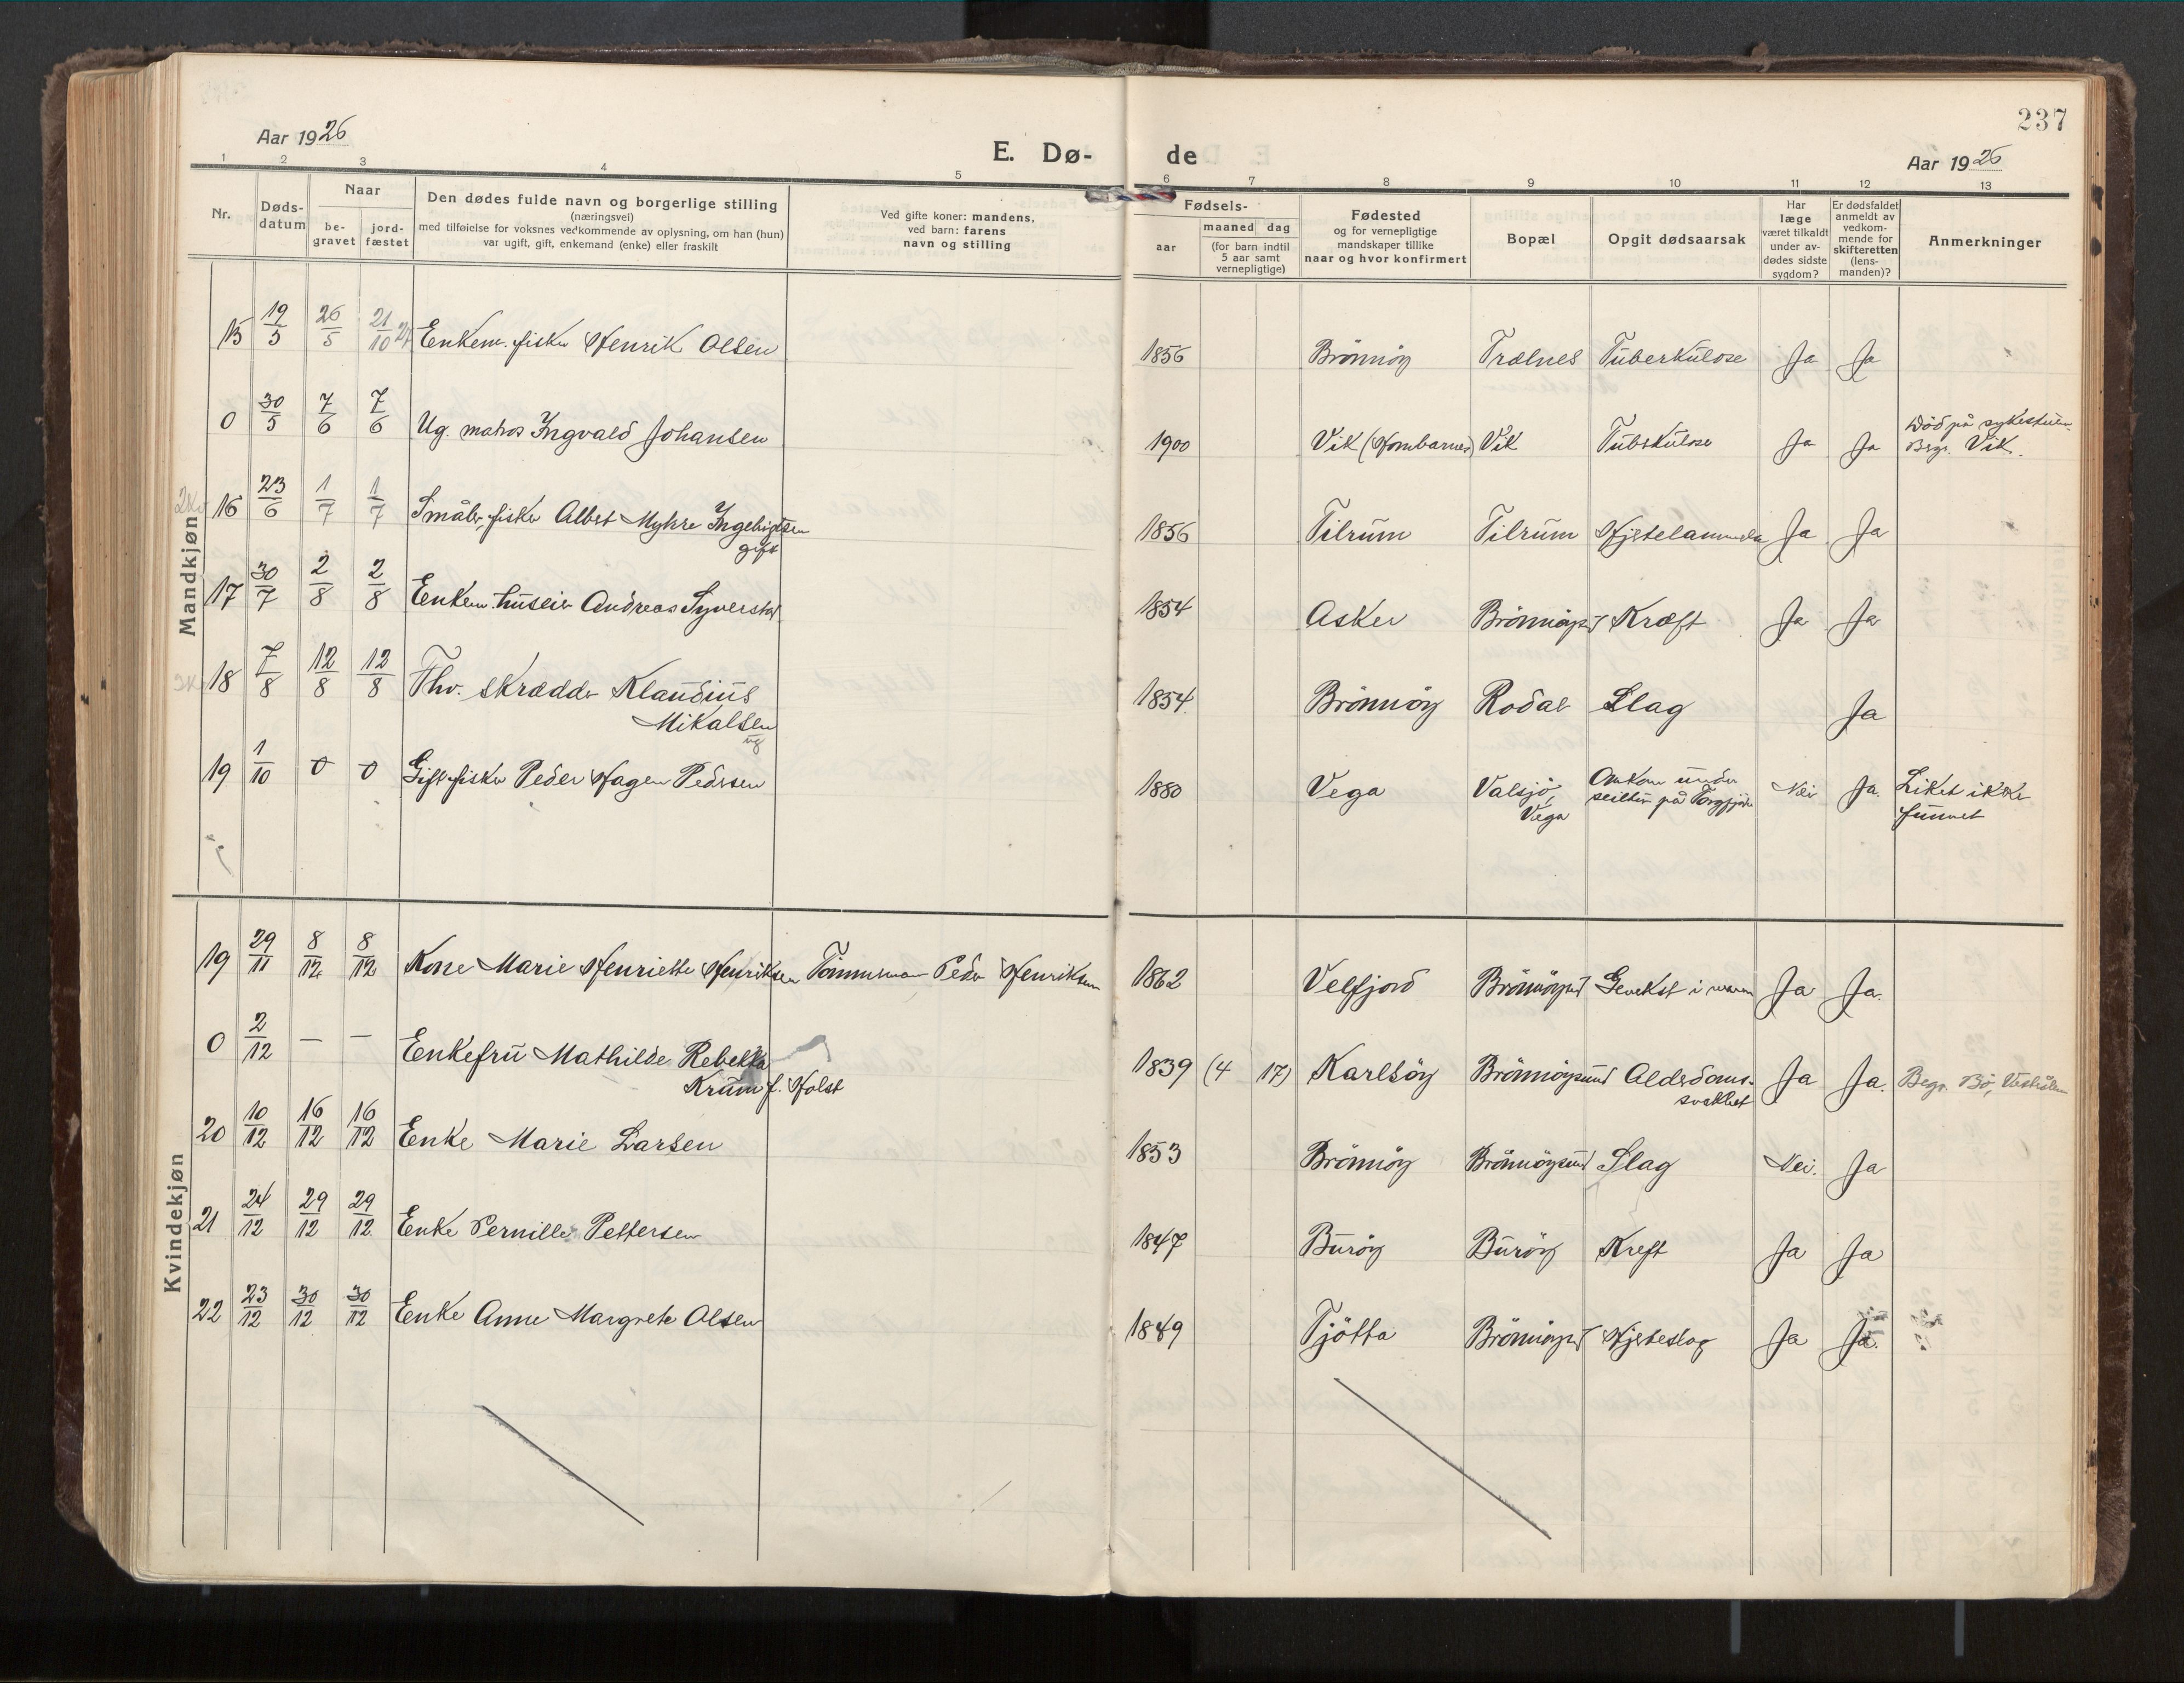 237
Aar 1926
E. Dø-
de
Aar 1926
1 2 3 4 5 6 7 8 9 10 11 12 13
Nr.
Døds-
datum
Naar
be-
gravet
jord-
fæstet
Den dødes fulde navn og borgerlige stilling
(næringsvei)
med tilføielse for voksnes vedkommende av oplysning, om han (hun)
var ugift, gift, enkemand (enke) eller fraskilt
Ved gifte koner: mandens,
ved barn: farens
navn og stilling
Fødsels-
aar
maaned dag
(for barn indtil
5 aar samt
vernepligtige)
Fødested
og for vernepligtige
mandskaper tillike
naar og hvor konfirmert
Bopæl
Opgit dødsaarsak
Har
læge
været tilkaldt
under av-
dødes sidste
sygdom?
Er dødsfaldet
anmeldt av
vedkom-
mende for
skifteretten
(lens-
manden)?
Anmerkninger
Mandkjøn
15 19/5 26/5 21/10 Enkem. fisker Henrik Olsen 1856 Brönnöy Trælnes Tuberkulose Ja Ja
0 30/5 7/6 7/6 Ug. matros Ingvald Johansen 1900 Vik (Sombarnes) Vik Tuberkulose Ja Ja Död på sykestuen.
Begr. Vik.
16 23/6 1/7 1/7 Småbr, fisker Albert Myhre Ingebrigtsen 1856 Tilrum Tilrum Hjertelammelse Ja Ja
gift
17 30/7 2/8 2/8 Enkem. huseier Andreas Syverstad 1854 Asker Brönnöysund Kræft Ja Ja
18 7/8 12/8 12/8 Fhv. skrædder Klaudius 1854. Brönnöy Rodal Slag Ja
Mikalsen
ug
19 1/10 0 0 Gift fisker Peder Hagen Pedersen 1880 Vega Valsjö, Omkom under Nei Ja. Liket ikke
Vega seiltur på Torgfjorden funnet
Kvindekjøn
19 29/11 8/12 8/12 Kone Marie Henriette Henriksen Tömmerman Peder Henriksen 1862 Velfjord Brönnöysund Gevekst i maven Ja Ja.
0 2/12 — — Enkefru Mathilde Rebekka 1839 (4 17) Karlsöy Brönnöysund Alderdoms- Ja Ja. Begr. Bö, Vesterålen
Krum f. Holst svakhet
20 10/12 16/12 16/12 Enke Marie Larsen 1853 Brönnöy Brönnöysund Slag Nei. Ja
21 24/12 29/12 29/12. Enke Pernille Pettersen 1847 Buröy Buröy Kreft Ja Ja
22 23/12 30/12 30/12 Enke Anne Margrete Olsen 1849 Tjötta Brönnöysund Hjerteslag Ja Ja.